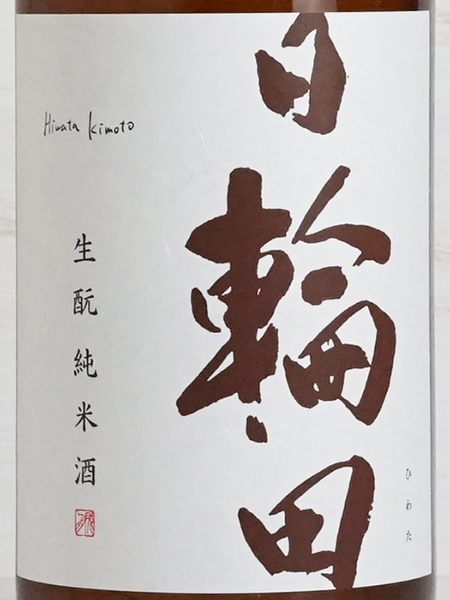 日輪田
ひわた
Hiwata kimoto
生酛純米酒